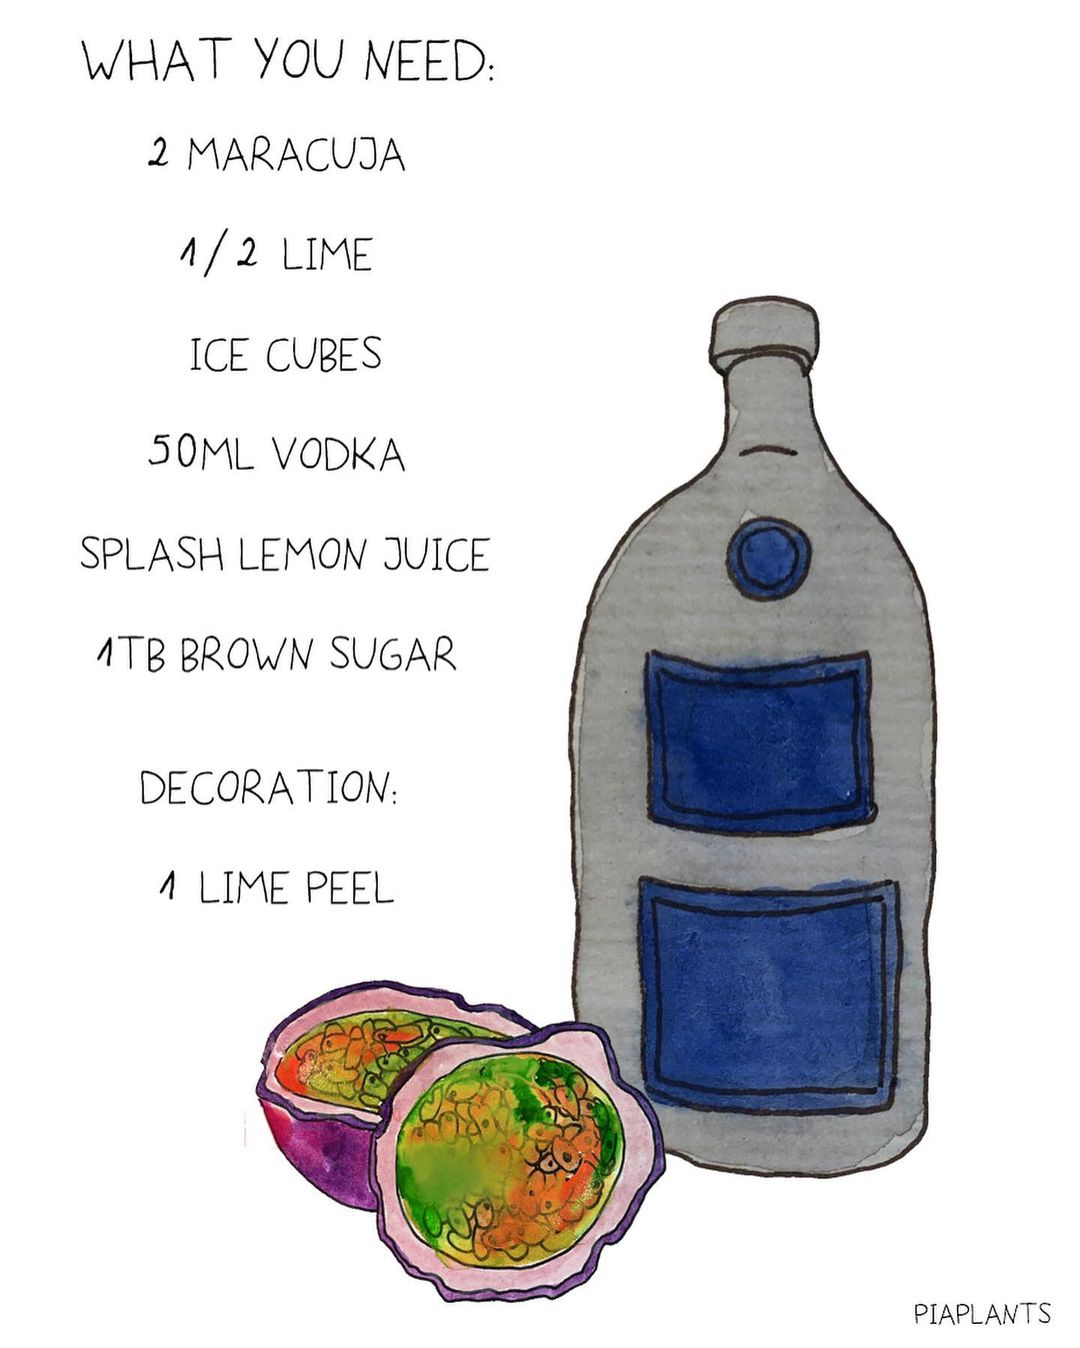 WHAT YOU NEED:
2 MARACUJA
1/2 LIME
ICE CUBES
50ML VODKA
SPLASH LEMON JUICE
1TB BROWN SUGAR
DECORATION:
1 LIME PEEL
PIAPLANTS